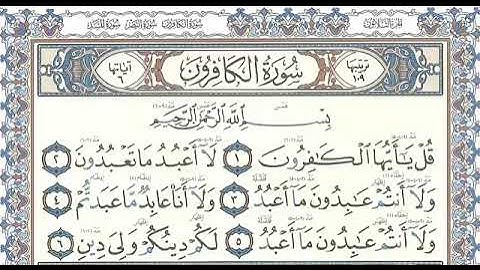 الجزء الثلاثون سورة الكافرون سورة النصر سورة المسد
ترتيبها ١٠٩ سُورَةُ الكَافِرُونَ آياتها ٦
بِسْمِ اللَّهِ الرَّحْمَنِ الرَّحِيمِ
قُلْ يَٰٓأَيُّهَا ٱلْكَٰفِرُونَ ١ لَآ أَعْبُدُ مَا تَعْبُدُونَ ٢
وَلَآ أَنتُمْ عَٰبِدُونَ مَآ أَعْبُدُ ٣ وَلَآ أَنَا۠ عَابِدٌ مَّا عَبَدتُّمْ ٤
وَلَآ أَنتُمْ عَٰبِدُونَ مَآ أَعْبُدُ ٥ لَكُمْ دِينُكُمْ وَلِىَ دِينِ ٦